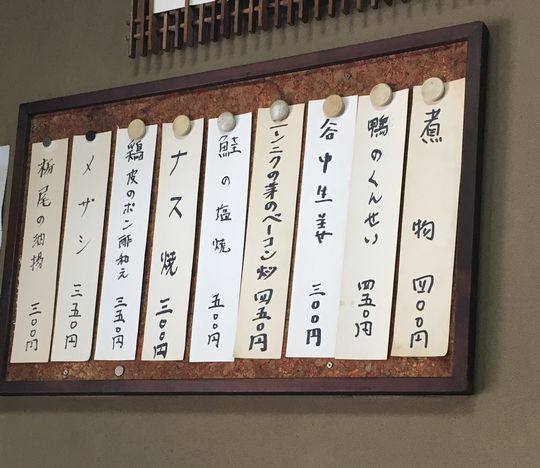 煮物 四〇〇円
鴨のくんせい 四五〇円
谷中生姜 三〇〇円
ニンニクの芽のベーコン炒 四五〇円
鮭の塩焼 五〇〇円
ナス焼 三〇〇円
鶏皮のポン酢和え 三五〇円
メザシ 三五〇円
栃尾の油揚 三〇〇円